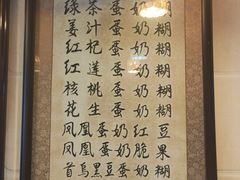 绿茶蛋奶糊
姜汁蛋奶糊
红杞蛋奶糊
红莲蛋奶糊
核桃蛋奶糊
花生蛋奶糊
凤凰蛋奶红豆
凤凰蛋奶脆果
首乌黑豆蛋奶糊